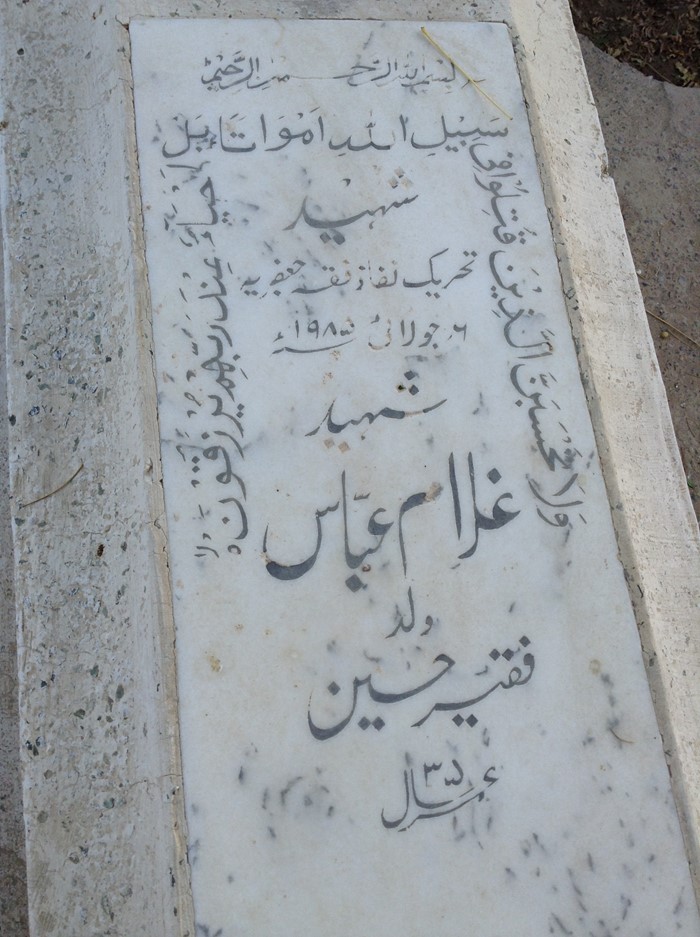 بسم اللہ الرحمن الرحیم
وَلَا تَحْسَبَنَّ الَّذِیْنَ قُتِلُوْا فِیْ
سَبِیْلِ اللّٰہِ اَمْوَاتًا بَلْ
اَحْیَاءٌ عِنْدَ رَبِّہِمْ یُرْزَقُوْنَ
شہید
تحریک نفاذ فقہ جعفریہ
۶ جولائی ۱۹۸۵ء
شہید
غلام عبّاس
ولد
فقیر حسین
عمر ۳۵ سال